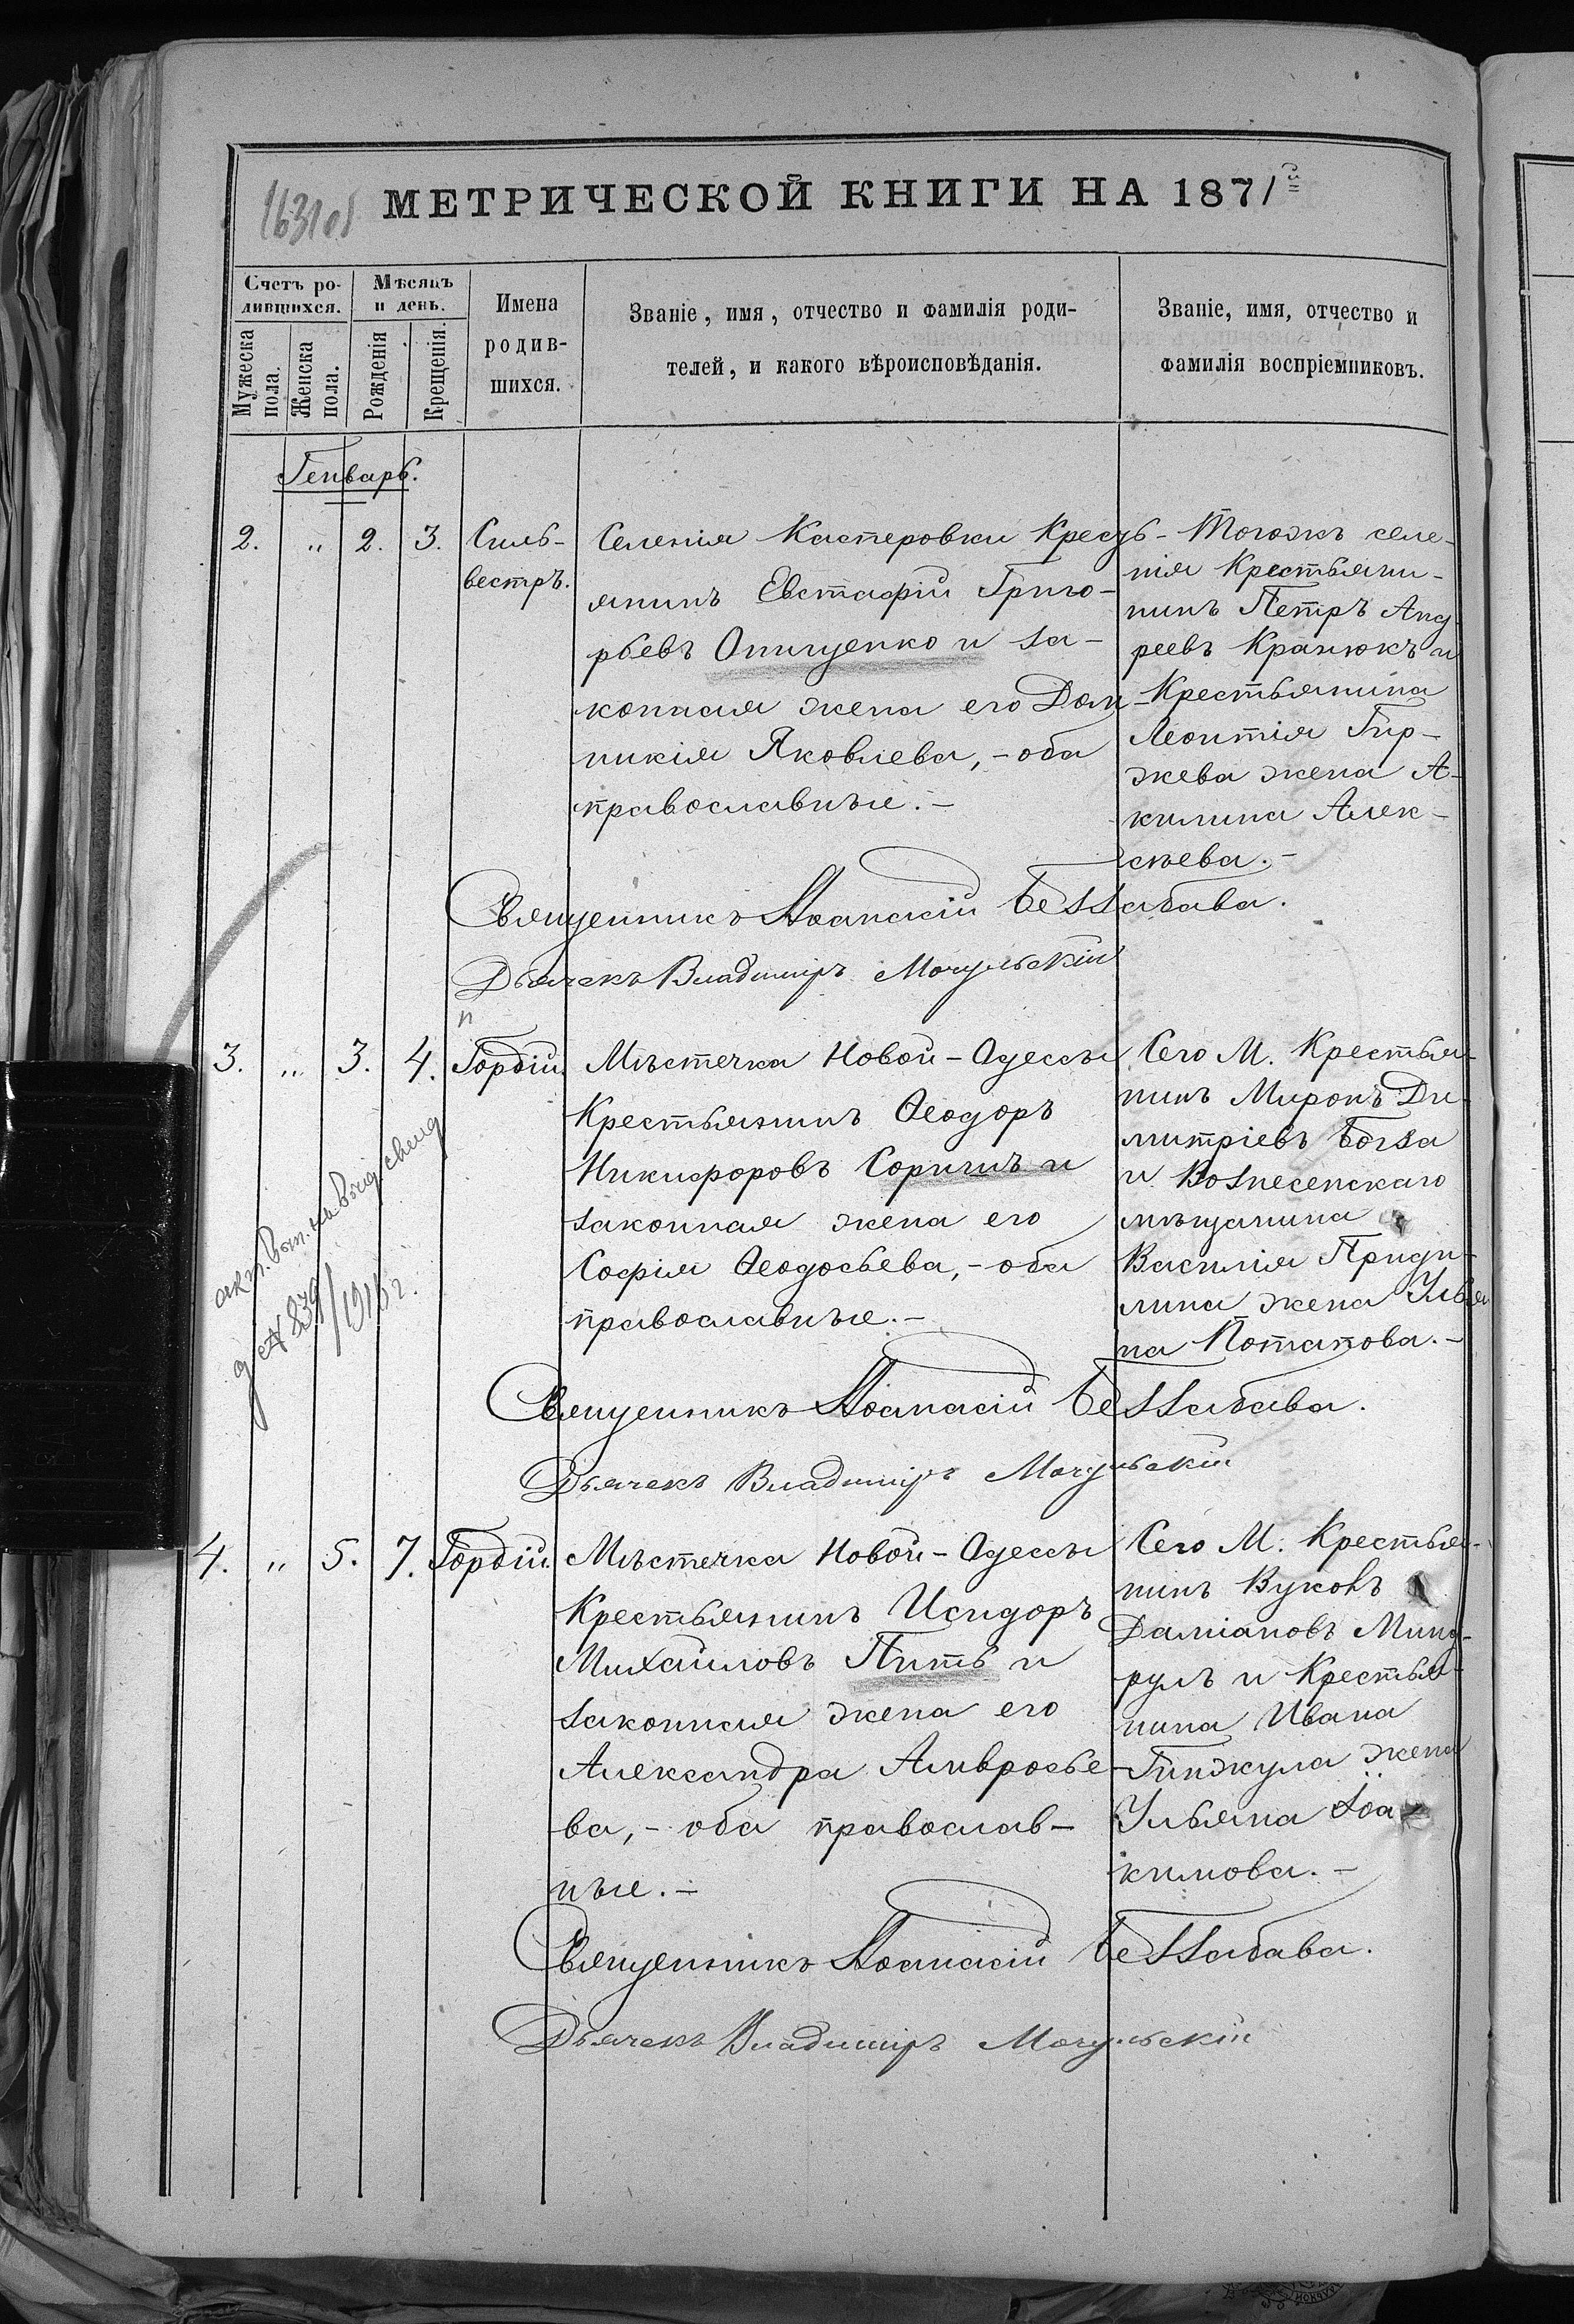 МЕТРИЧЕСКОЙ КНИГИ НА 1871й
Счетъ ро-
дившихся.
Мужеска
пола.
Женска
пола.
Мѣсяцъ
и день.
Рожденія
Крещенія.
Имена
родив-
шихся.
Званіе, имя, отчество и фамилія роди-
телей, и какого вѣроисповѣданія.
Званіе, имя, отчество и
фамилія воспріемниковъ.
Генварь.
2. „ 2. 3.
Силь-
вестръ.
Селенія Кастеровки Кресть-
янинъ Евстафій Григо-
рьевъ Онищенко и за-
конная жена его Дом-
никія Яковлева, - оба
православные. -
Тогожъ селе-
нія Крестьяни-
нинъ Петръ Анд-
реевъ Кранюкъ и
Крестьянина
Леонтія Гир-
жева жена А-
килина Алек-
сѣева. -
Священникъ Аѳанасій Беззабава.
Дьячекъ Владиміръ Мочульскій
п
3. „ 3. 4.
Гордій.
Мѣстечка Новой-Одессы
Крестьянинъ Ѳеодоръ
Никифоровъ Соричъ и
законная жена его
Софія Ѳеодосьева, - оба
православные. -
Сего М. Крестья-
нинъ Миронъ Ди-
митріевъ Богза
и Вознесенскаго
мѣщанина
Василія Приди-
лина жена Улья
на Потапова. -
Священникъ Аѳанасій Беззабава.
Дьячекъ Владиміръ Мочульскій
4. „ 5. 7.
Гордій.
Мѣстечка Новой-Одессы
Крестьянинъ Исидоръ
Михайловъ Пить и
законная жена его
Александра Амвросье-
ва, - оба православ-
ные. -
Сего М. Крестья-
нинъ Вуколъ
Даміановъ Мину-
рулъ и Крестья-
нина Ивана
Гинжула жена
Ульяна Іоа-
кимова. -
Священникъ Аѳанасій Беззабава.
Дьячекъ Владиміръ Мочульскій